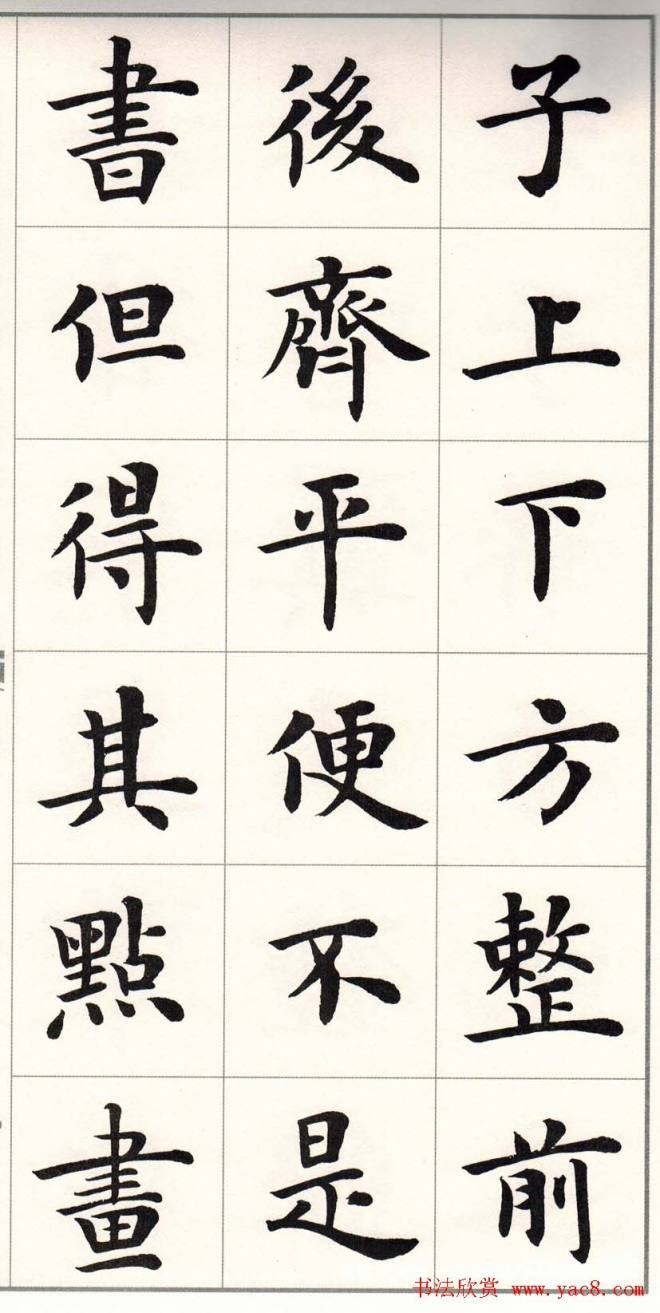 子上下方整前
後齊平便不是
書但得其點畫
书法欣赏 www.yac8.com